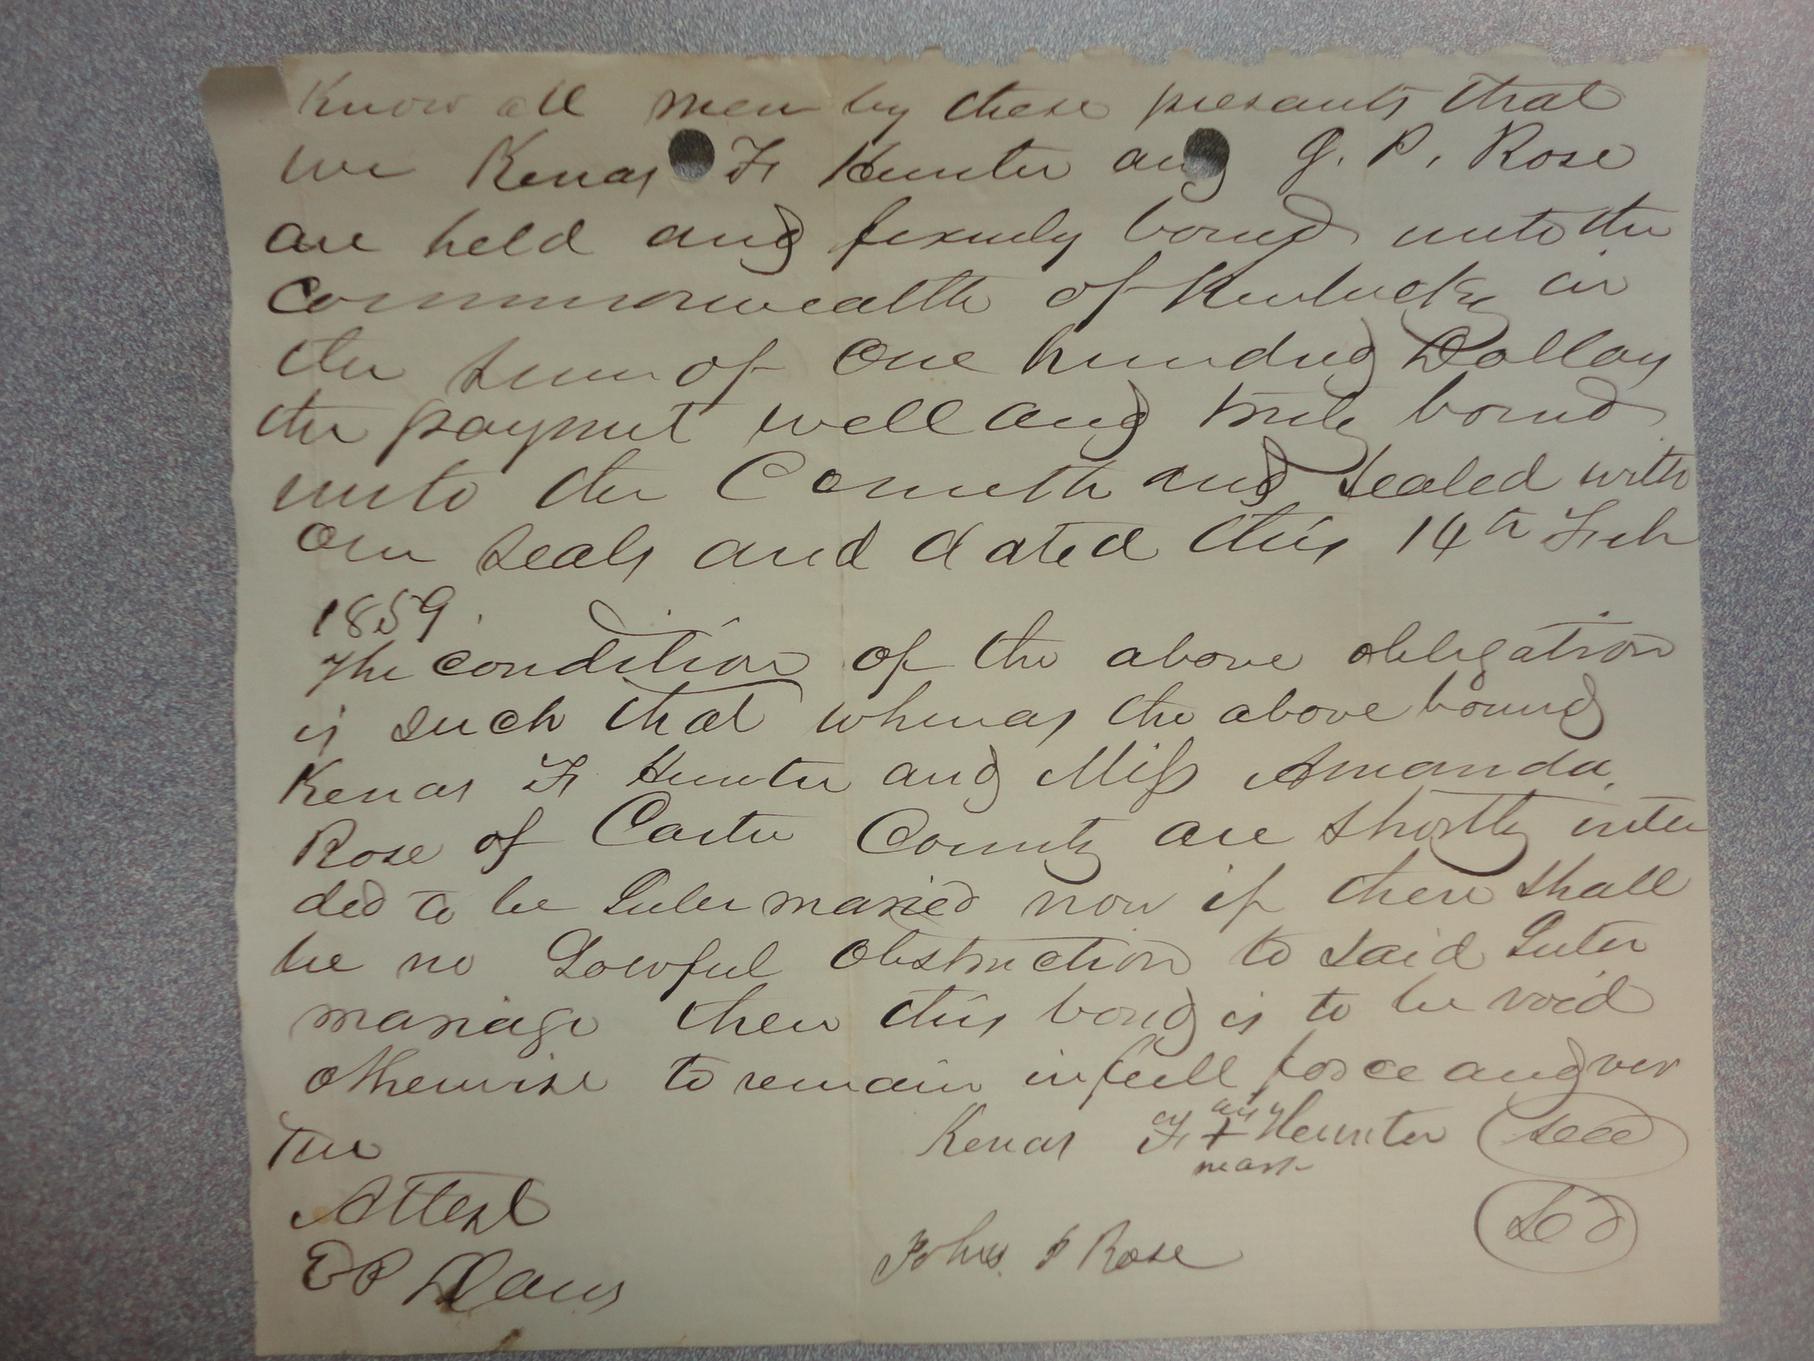 Know all men by these presants that
we Kenas F. Hunter and J. P. Rose
are held and firmly bound unto the
Commonwealth of Kentucky in
the sum of one hundred Dollars
the paymet well and truly bound
unto the Comwth and sealed with
our seals and dated this 14th Feb
1859.
The condition of the above obligation
is such that whereas the above bound
Kenas F. Hunter and Miss Amanda
Rose of Carter County are shortly inten
ded to be Inter maried now if there shall
be no Lowful obstruction to said Inter
mariage then this bond is to be void
otherwise to remain in full force and ver
tue
Kenas F. + Hunter seal
mark
Attest
John P Rose
E P Davis